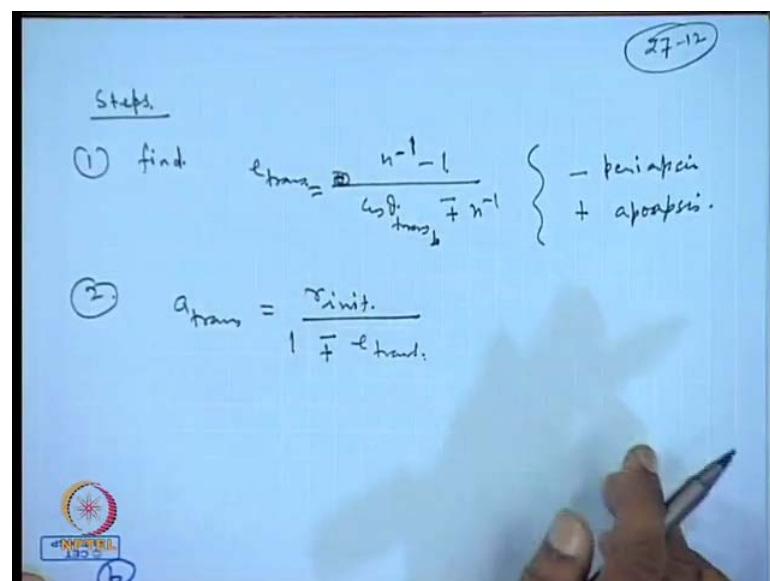 27-12
Steps.
① find. e trans = n⁻¹ - 1 / cos θ trans b ∓ n⁻¹ { - periapsis
+ apoapsis.
②. a trans = r init. / 1 ∓ e trans.
NPTEL